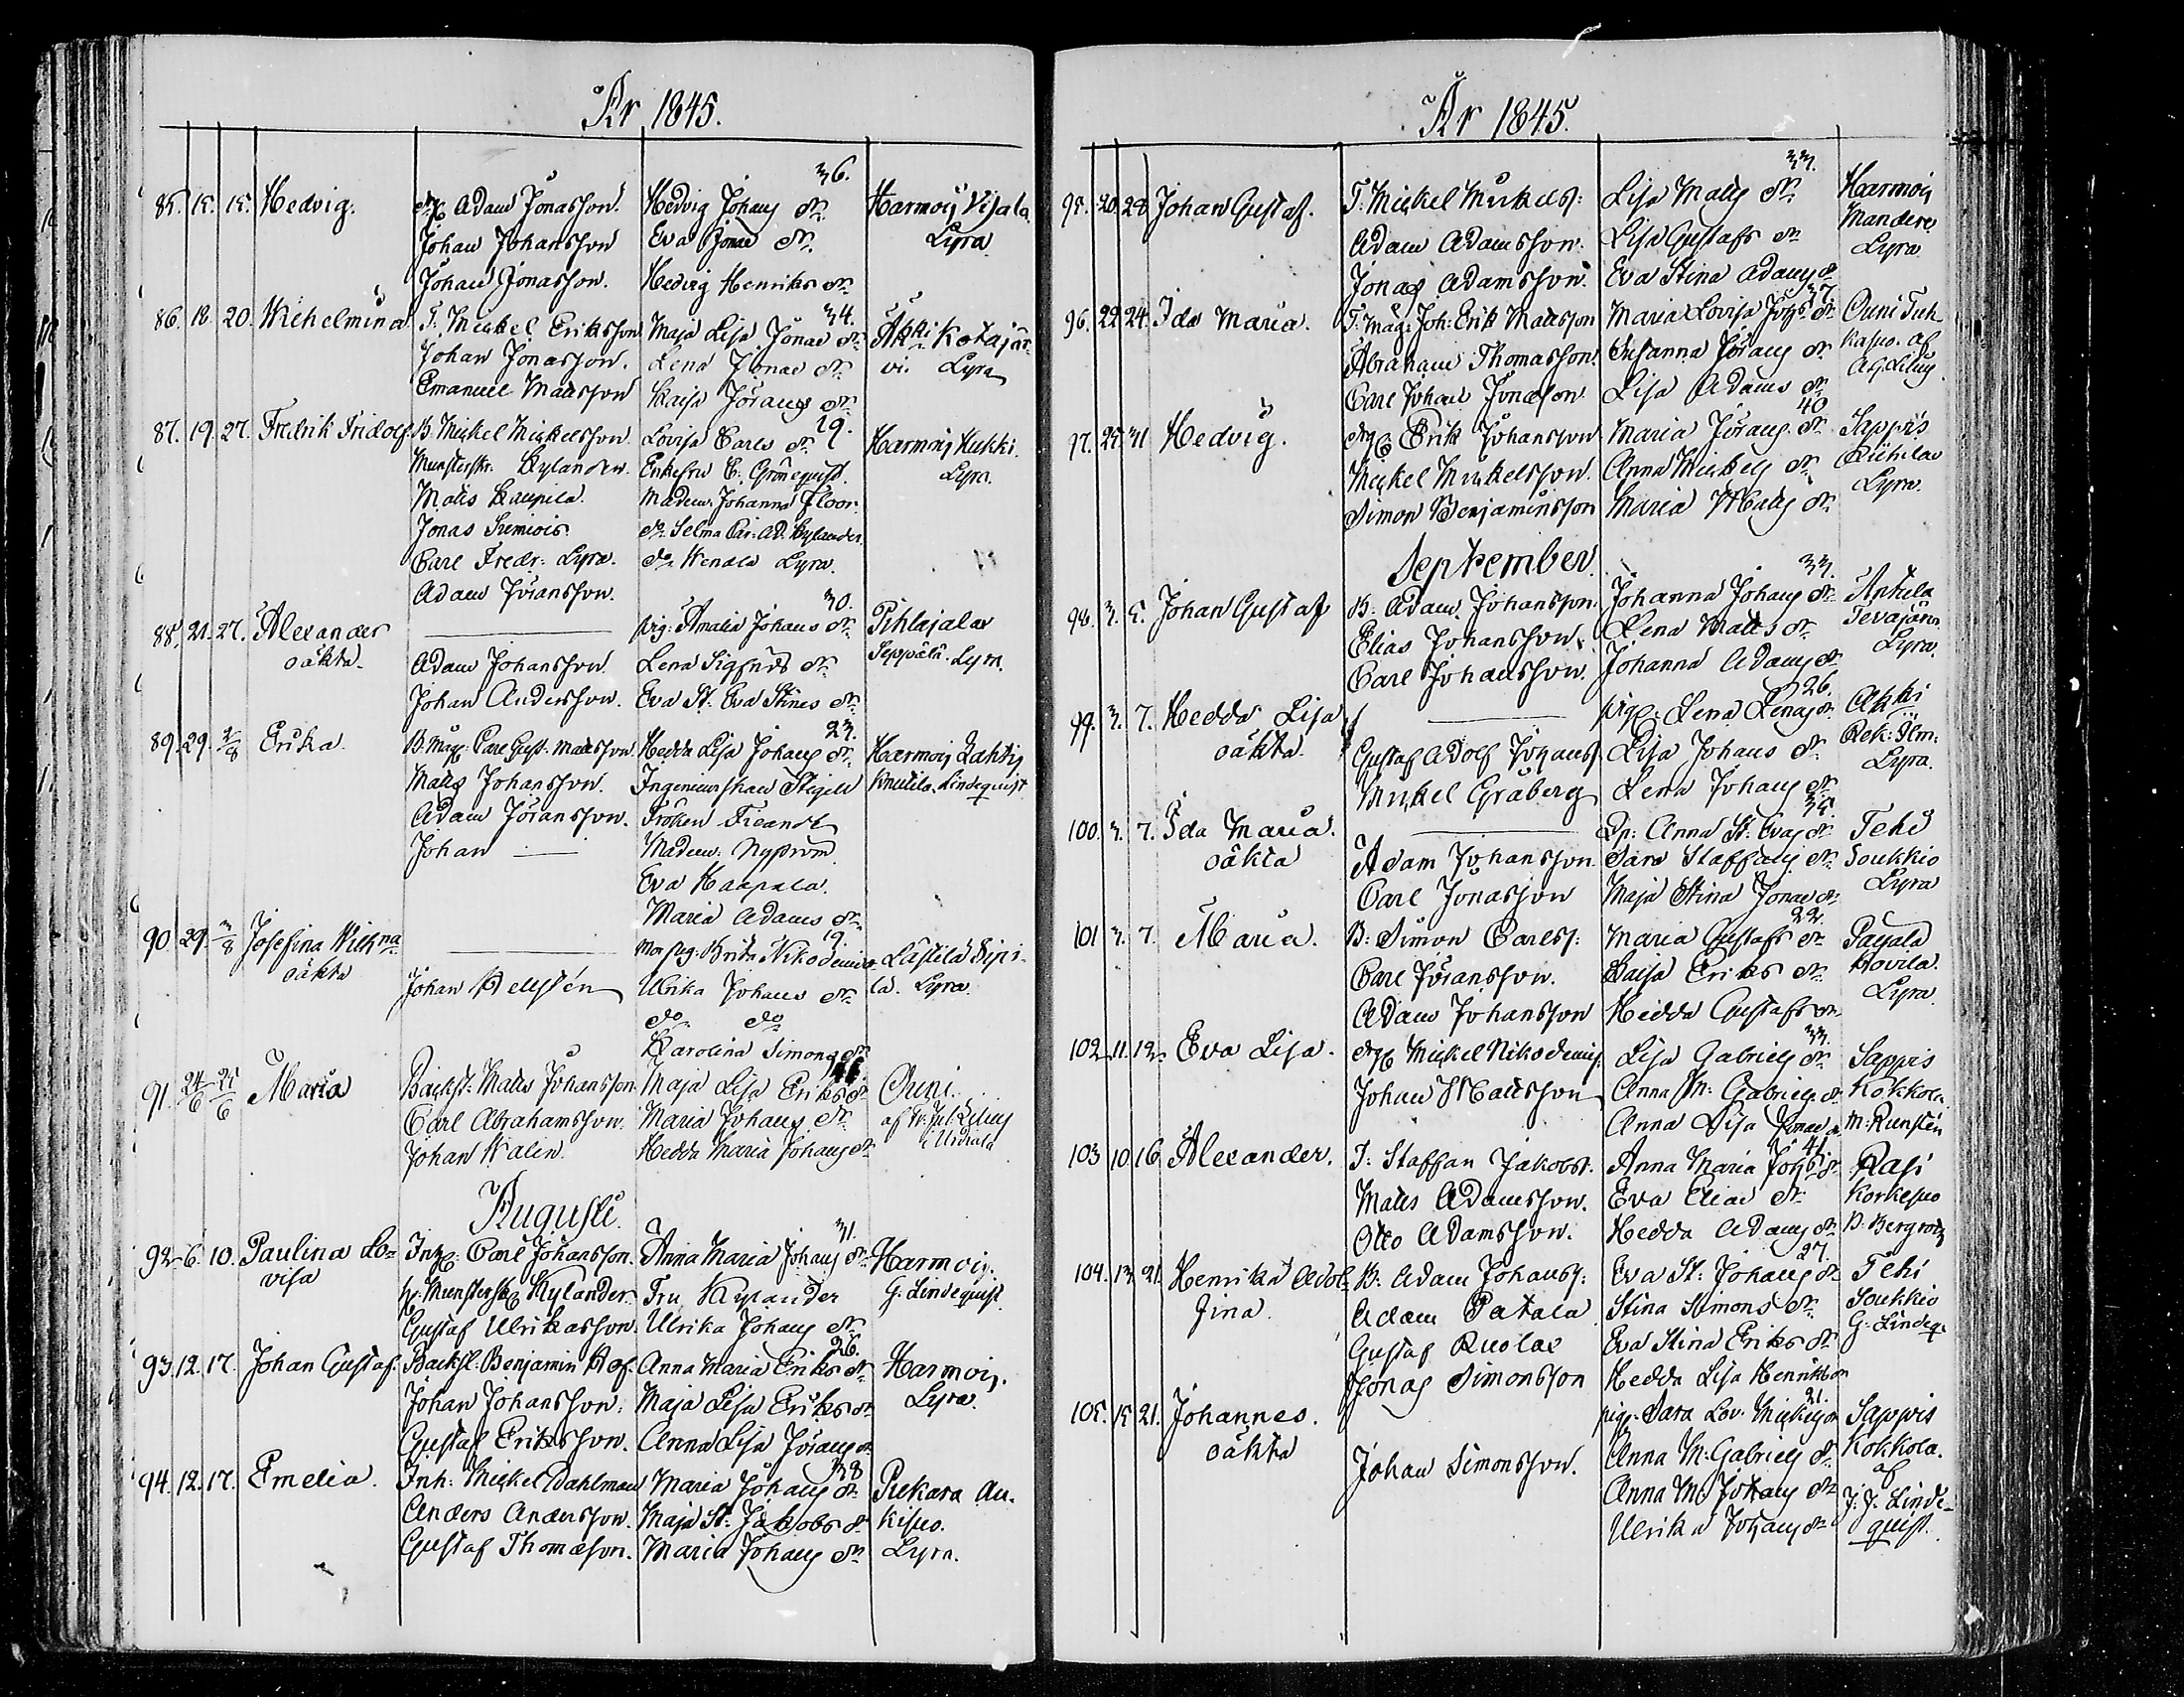 År 1845.
36.
85. 15. 15. Hedvig. Adam Jonasson. Hedvig Johans dr. Harmois Visala
Johan Johansson Eva Jonae dr. Lyra
Johan Jonasson. Hedvig Henriks dr.
34.
86. 18. 20. Wilhelmina T. Mickel Eriksson Maja Lisa Jonae dr. Akki Kotajär-
Johan Jonasson. Lena Jonae dr. vi. Lyra
Emanuel Mattsson Kaisa Jörans dr.
29.
87. 19. 27. Fredrik Fridolf. B. Mickel Mickelsson. Lovisa Carls dr. Harmois Hukki.
Munsterskr. Kylander. Enkefru C. Grönequist. Lyra.
Matts Kaupila. Madem. Johanna Floor.
Jonas do Selma Car. Ad. Kylander.
Carl Fredr: Lyra. do Wendla Lyra.
Adam Jöransson.
30.
88. 21. 27. Alexander pig: Amalia Johans dr. Pihlajala
oäkta. Adam Johansson. Lena Sigfrids dr. Seppälä. Lyra.
Johan Andersson. Eva St. Eva Stines dr.
23.
89. 29. 2/8 Erika. B. Måg: Carl Gust. Mattsson. Hedda Lisa Johans dr. Harmois Lahtis
Matts Johansson. Ingenieurskan Stigell Knutila. Lindequist
Adam Jöransson. Fröken Freandt
Johan — Madem. Nyström
Eva Haapala.
Maria Adams dr.
19.
90. 29. 3/8 Josefina Wilhna Brita Nikodemi dr. Lästilä Sipi-
oäkta Johan Hellstén Ulrika Johans dr. lä. Lyra.
do do
Karolina Simons dr.
91. 24/6 25/6 Maria Backst: Matts Johansson. Maja Lisa Eriks dr. Ouni.
Carl Abrahamsson. Maria Johans dr.
Johan Walin. Hedda Maria Johans dr. i Urdiala
Augusti.
31.
92. 6. 10. Paulina Lo- Inh: Carl Johansson. Anna Maria Johans dr. Harmois.
visa Munsterskr Kylander. Fru Kylander G. Lindequist.
Gustaf Ulrikasson. Ulrika Johans dr.
26.
93. 12. 17. Johan Gustaf. Backst. Benjamin Hof. Anna Maria Eriks dr. Harmois.
Johan Johansson. Maja Lisa Eriks dr. Lyra.
Gustaf Eriksson. Anna Lisa Jörans dr.
38
94. 12. 17. Emelia. Inh: Mickel Dahlman Maria Johans dr. Pukara Au-
Anders Andersson. Maja St: Jakobs dr. kisuo.
Gustaf Thomasson. Maria Johans dr. Lyra.
År 1845.
33.
95. 20. 28. Johan Gustaf. T. Mickel Mickels: Lisa Matts dr. Harmois
Adam Adamsson. Lisa Gustafs dr. Mandere
Jonas Adamsson. Eva Stina Adams dr. Lyra
37.
96. 22. 24. Ida Maria. T. Måg: Joh: Erik Mattsson Maria Lovisa Johs dr. Ouni Tuh
Abraham Thomasson. Susanna Jörans dr. kasuo. af
Carl Johan Jonasson Lisa Adams dr.
40
97. 25. 31 Hedvig. Erik Johansson Maria Jörans dr. Sappis
Mickel Mickelsson. Anna Mickels dr. Riihilax
Simon Benjaminsson Maria Matts dr. Lyra.
September.
33.
98. 3. 5. Johan Gustaf B. Adam Johansson. Johanna Johans dr. Anttila
Elias Johansson. Lena Matts dr. Tevajärvi
Carl Johansson. Johanna Adams dr. Lyra.
26.
99. 3. 7. Hedda Lisa pig: Lena Lenas dr. Akki
oäkta. Gustaf Adolf Johanss. Lisa Johans dr. Rek: Ilm:
Mickel Gråberg Lena Johans dr. Lyra.
35.
100. 3. 7. Ida Maria. Anna St. Evas dr. Tehi
oäkta Adam Johansson. Sara Staffans dr. Soukkio
Carl Jonasson Maja Stina Jonae dr. Lyra
22.
101 3. 7. Maria. B: Simon Carls: Maria Gustafs dr. Pajala
Carl Jöransson. Kaisa Eriks dr. Hovila.
Adam Johansson Hedda Gustafs dr. Lyra.
33.
102 11. 12. Eva Lisa. Mickel Nikodemis. Lisa Gabriels dr. Sappis
Johan Mattsson Anna M: Gabriels dr. Kokkola.
Anna Lisa Jonae dr. M: Runstén
41.
103 10. 16. Alexander. T. Staffan Jakobs: Anna Maria Johs dr. Rasi
Matts Adamsson. Eva Eliae dr. Korkesuo
Otto Adamsson. Hedda Adams dr. B. Bergroth
27.
104. 13. 21. Henrika Adol- B. Adam Johanss: Eva St: Johans dr. Tehi
fina. Adam Patala Stina Simons dr. Soukkio
Gustaf Ruolax Eva Stina Eriks dr. G. Lindeq:
Jonas Simonsson Hedda Lisa Henriks dr.
21.
105. 15. 21. Johannes. pig. Sara Lov. Mickels dr. Sappis
oäkta Johan Simonsson. Anna M. Gabriels dr. Kokkola.
Anna M. Johans dr. af
Ulrika Johans dr. J. J. Linde-
quist.